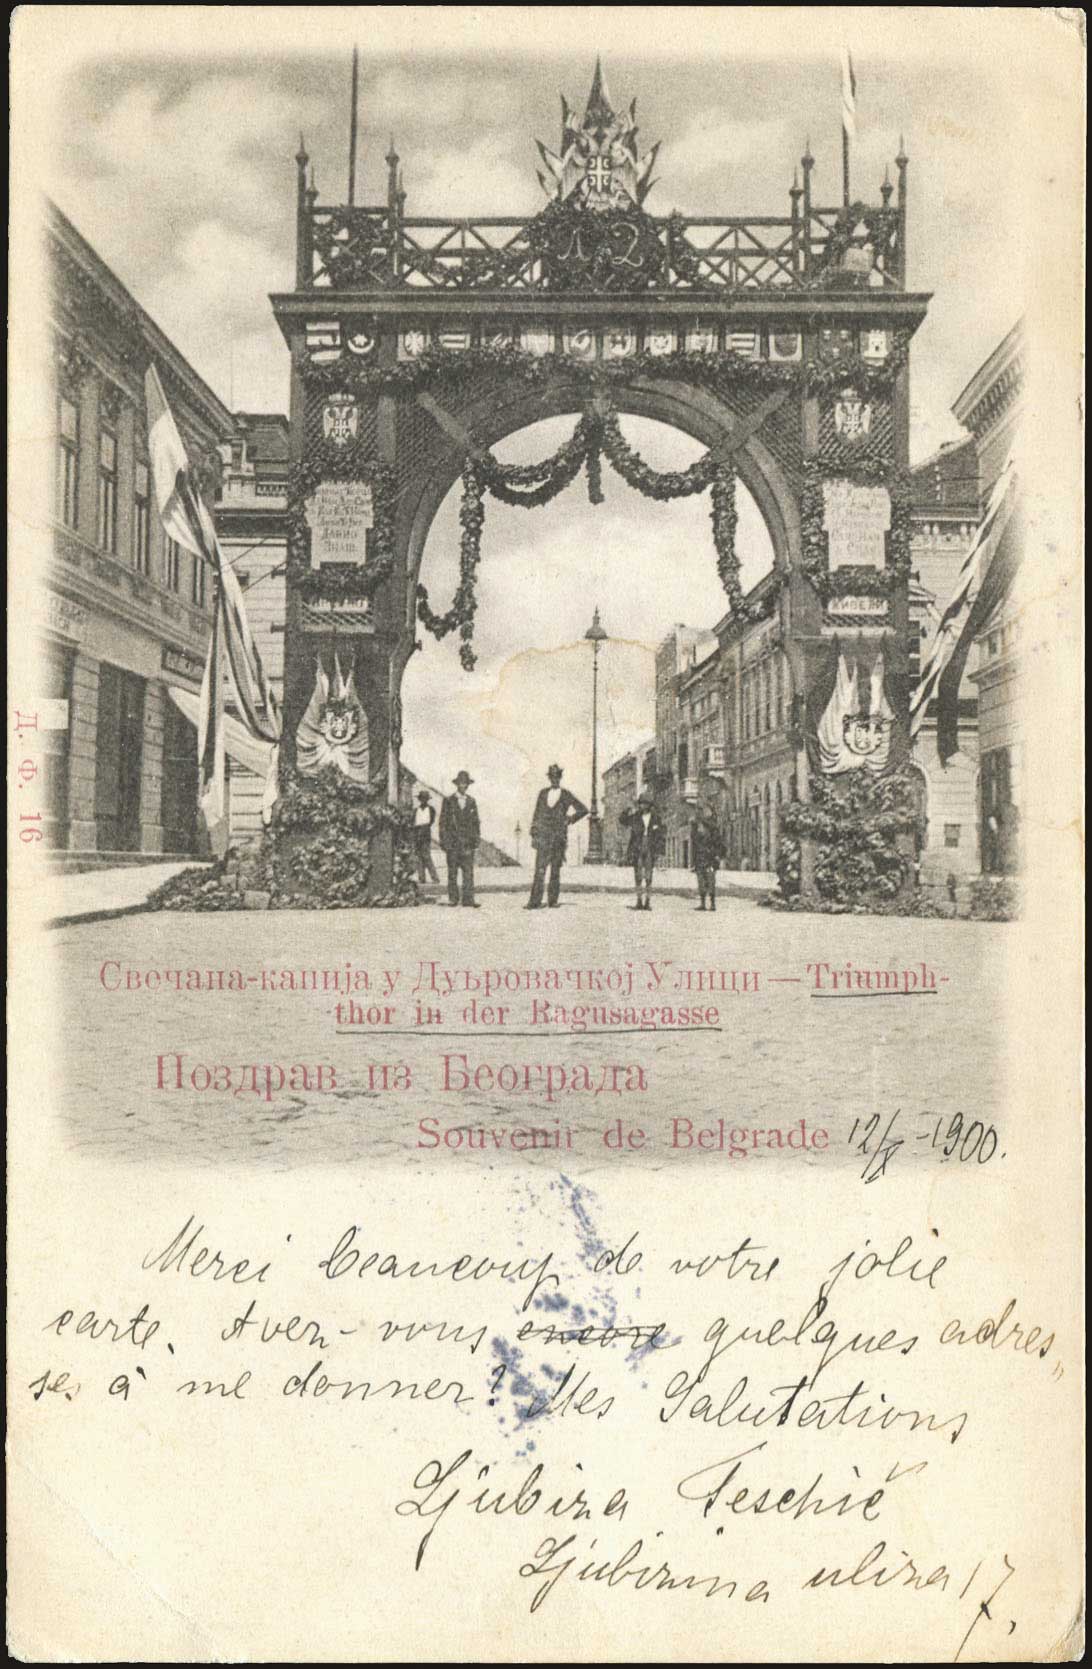 Л 2
ДАВНО
ЗНАШ
ЖИВЕЛИ
Д. Ф. 16
Свечана-капија у Дуьровачкој Улици — Triumph-
thor in der Ragusagasse
Поздрав из Београда
Souvenir de Belgrade 12/X - 1900.
Merci beaucoup de votre jolie
carte. Avez-vous encore quelques adres„
ses à me donner? Mes Salutations
Ljubiza Teschič
Ljubizina uliza 17.